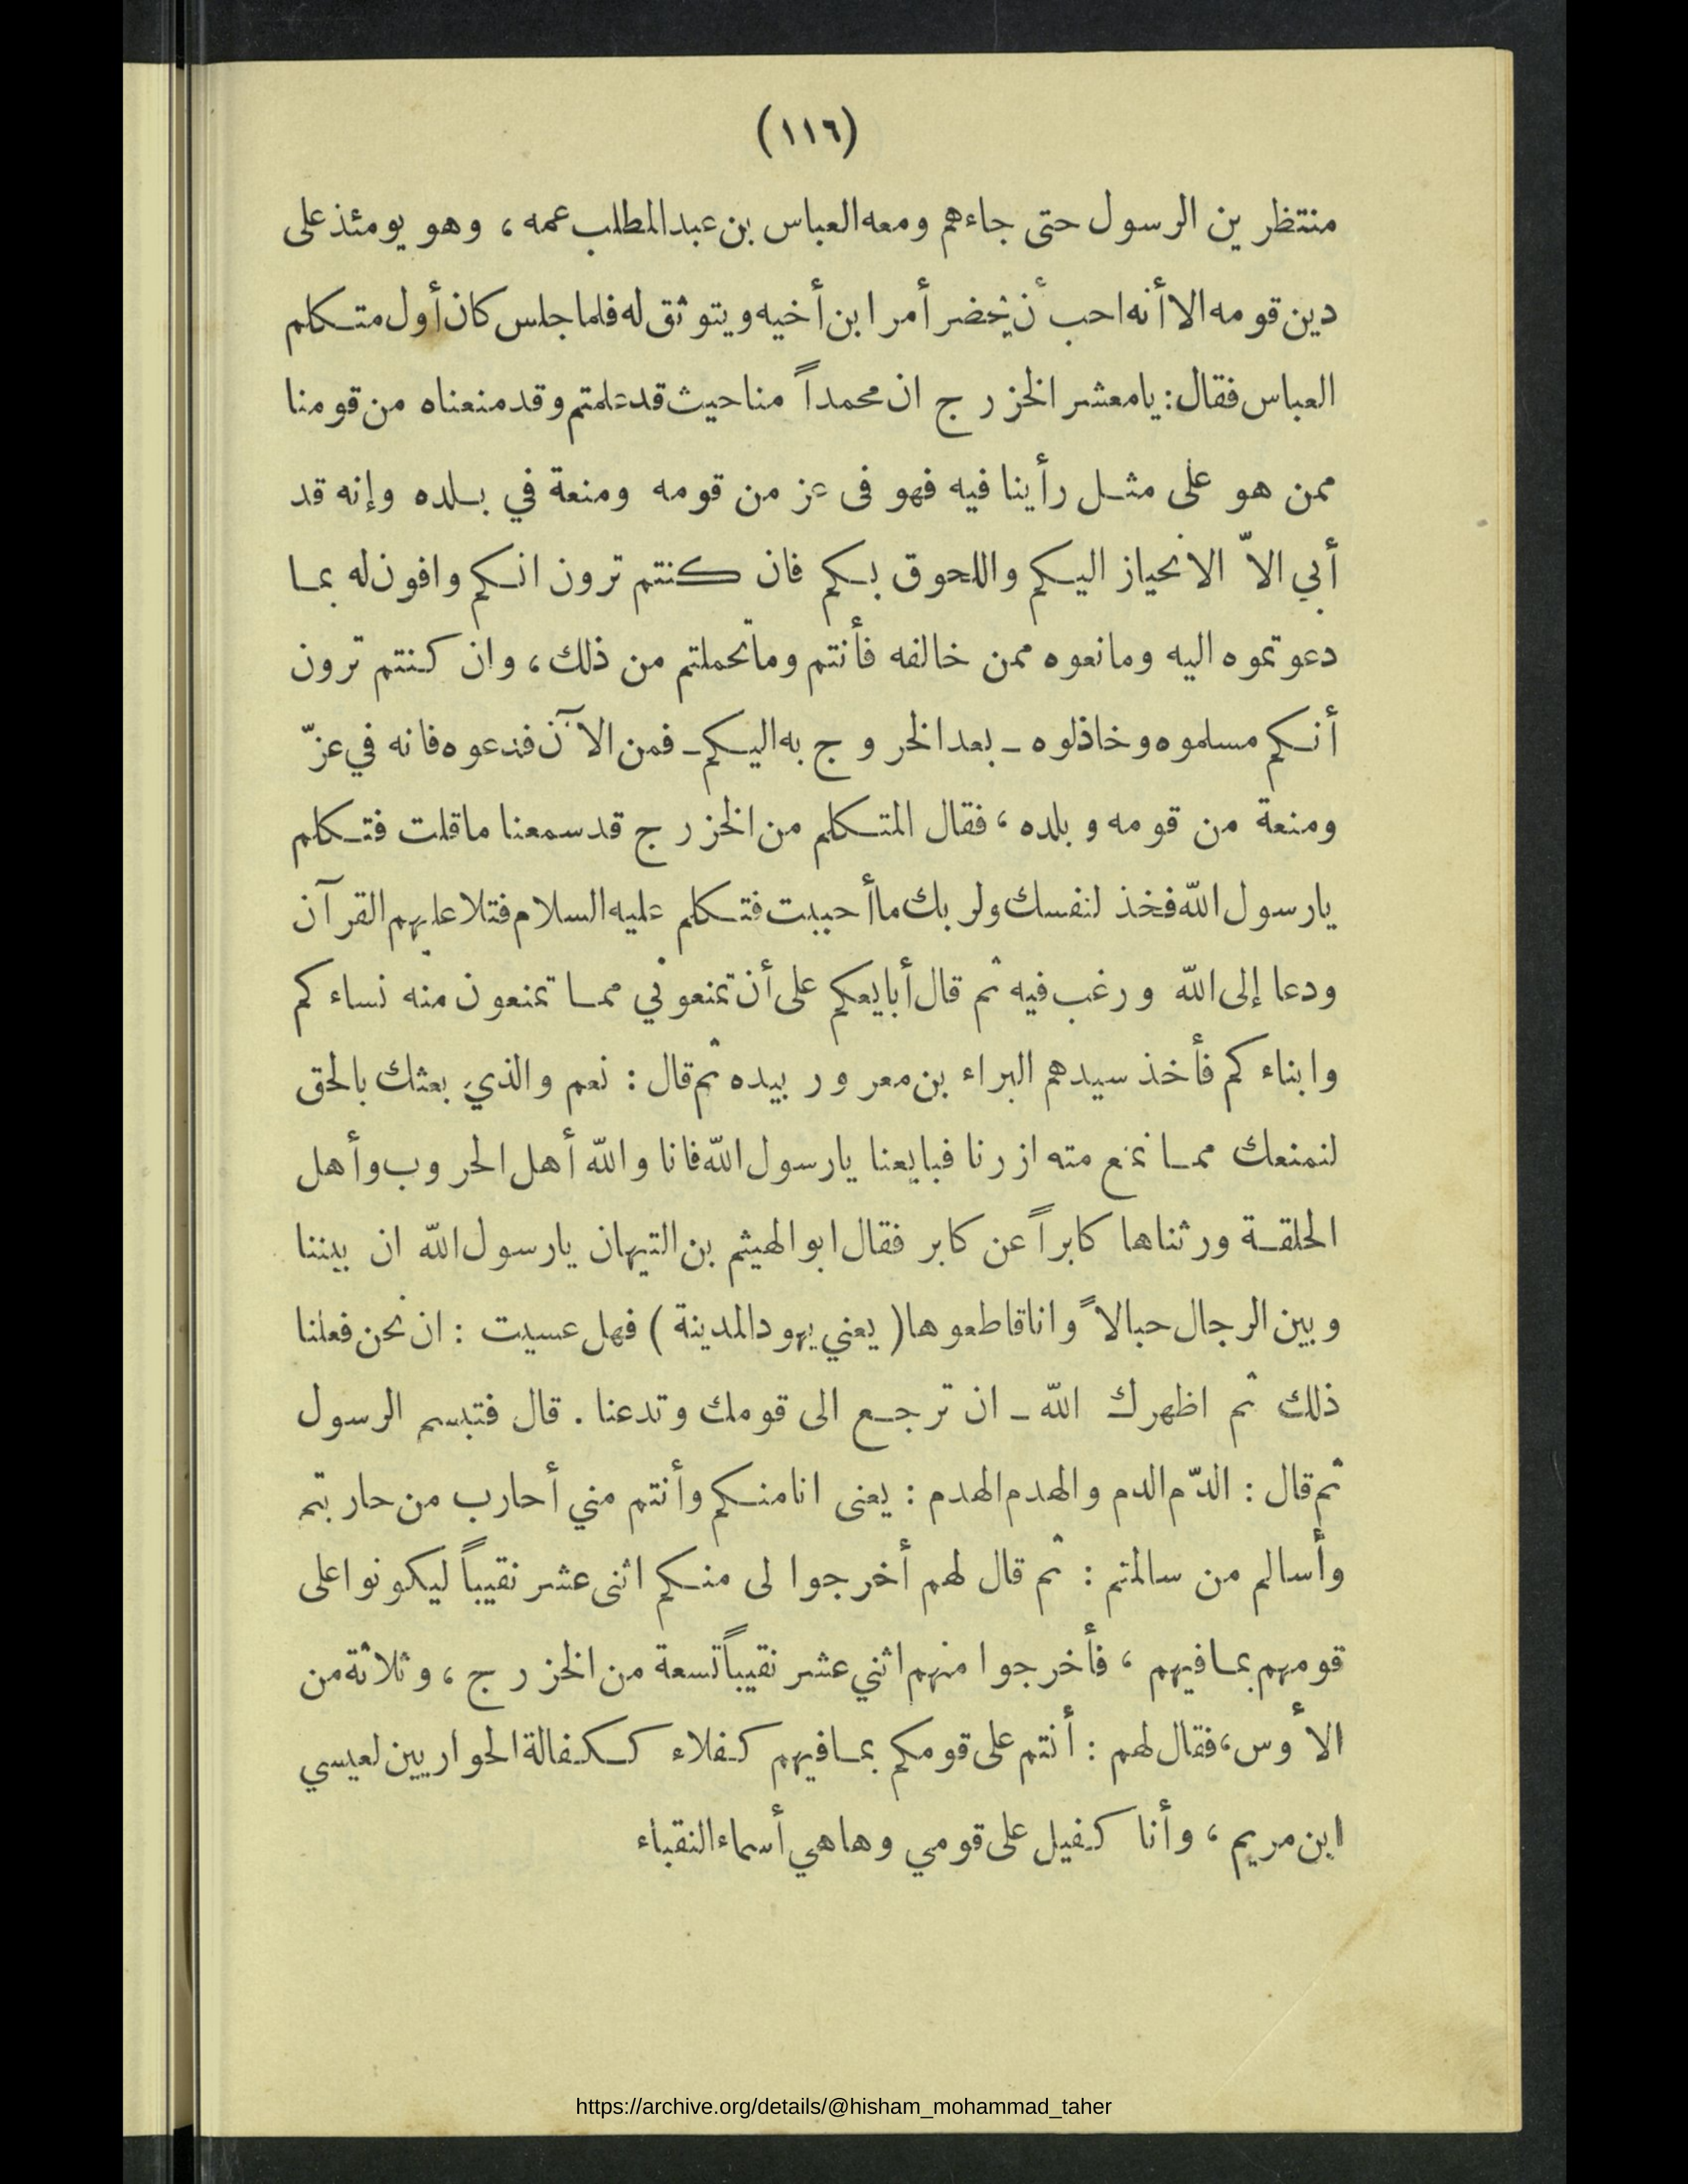 (١١٦)
منتظرين الرسول حتى جاءهم ومعه العباس بن عبد المطلب عمه ، وهو يومئذ على
دين قومه الا أنه احب أن يحضر أمر ابن أخيه ويتوثق له فلما جلس كان أول متكلم
العباس فقال : يامعشر الخزرج ان محمداً مناحيث قد علمتم وقد منعناه من قومنا
ممن هو على مثل رأينا فيه فهو فى عز من قومه ومنعة في بلده وإنه قد
أبي الاّ الانحياز اليكم واللحوق بكم فان كنتم ترون انكم وافون له بما
دعوتموه اليه ومانعوه ممن خالفه فأنتم وماتحملتم من ذلك ، وان كنتم ترون
أنكم مسلموه وخاذلوه ـ بعد الخروج به اليكم ـ فمن الآن فدعوه فانه في عزّ
ومنعة من قومه وبلده ، فقال المتكلم من الخزرج قد سمعنا ماقلت فتكلم
يارسول الله فخذ لنفسك ولربك ماأحببت فتكلم عليه السلام فتلا عليهم القرآن
ودعا إلى الله ورغب فيه ثم قال أبايعكم على أن تمنعوني مما تمنعون منه نساءكم
وابناءكم فأخذ سيدهم البراء بن معرور بيده ثم قال : نعم والذي بعثك بالحق
لنمنعك مما نمنع مته ازرنا فبايعنا يارسول الله فانا والله أهل الحروب وأهل
الحلقة ورثناها كابراً عن كابر فقال ابو الهيثم بن التيهان يارسول الله ان بيننا
وبين الرجال حبالاً واناقاطعوها ( يعني يهود المدينة ) فهل عسيت : ان نحن فعلنا
ذلك ثم اظهرك الله ـ ان ترجع الى قومك وتدعنا . قال فتبسم الرسول
ثم قال : الدّم الدم والهدم الهدم : يعنى انامنكم وأنتم مني أحارب من حاربتم
وأسالم من سالمتم : ثم قال لهم أخرجوا لى منكم اثنى عشر نقيباً ليكونوا على
قومهم بمافيهم ، فأخرجوا منهم اثني عشر نقيباً تسعة من الخزرج ، وثلاثة من
الأوس ، فقال لهم : أنتم على قومكم بمافيهم كفلاء ككفالة الحواريين لعيسي
ابن مريم ، وأنا كفيل على قومي وهاهي أسماء النقباء
https://archive.org/details/@hisham_mohammad_taher